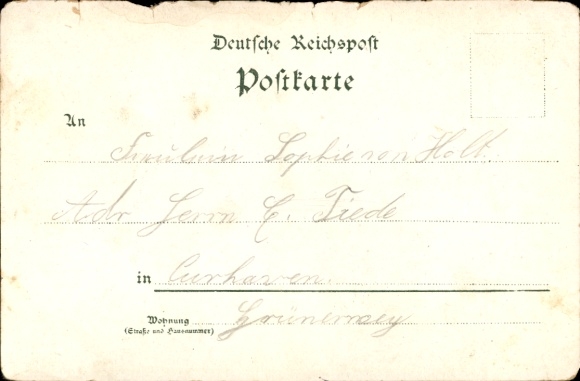 Deutsche Reichspost
Postkarte
An
Fräulein Sophie von Holt.
Adr Herrn C. Tiede
in Curhaven.
Wohnung Grünerweg
(Straße und Hausnummer)